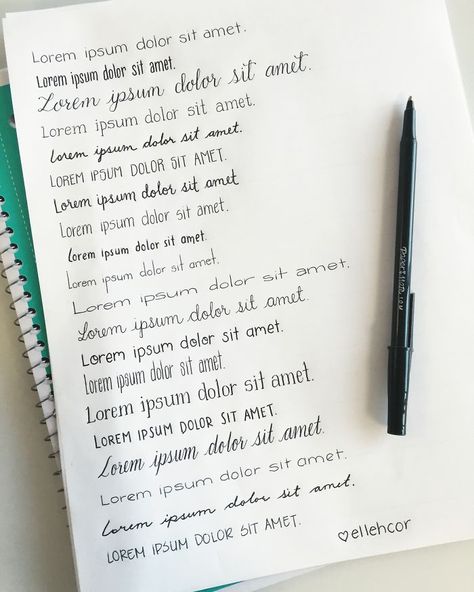 Lorem ipsum dolor sit amet.
Lorem ipsum dolor sit amet.
Lorem ipsum dolor sit amet.
Lorem ipsum dolor sit amet.
Lorem ipsum dolor sit amet.
LOREM IPSUM DOLOR SIT AMET.
Lorem ipsum dolor sit amet
Lorem ipsum dolor sit amet.
Lorem ipsum dolor sit amet.
Lorem ipsum dolor sit amet.
Lorem ipsum dolor sit amet.
Lorem ipsum dolor sit amet.
Lorem ipsum dolor sit amet.
Lorem ipsum dolor sit amet.
Lorem ipsum dolor sit amet.
LOREM IPSUM DOLOR SIT AMET.
Lorem ipsum dolor sit amet.
Lorem ipsum dolor sit amet.
Lorem ipsum dolor sit amet.
LOREM IPSUM DOLOR SIT AMET.
♡ellehcor